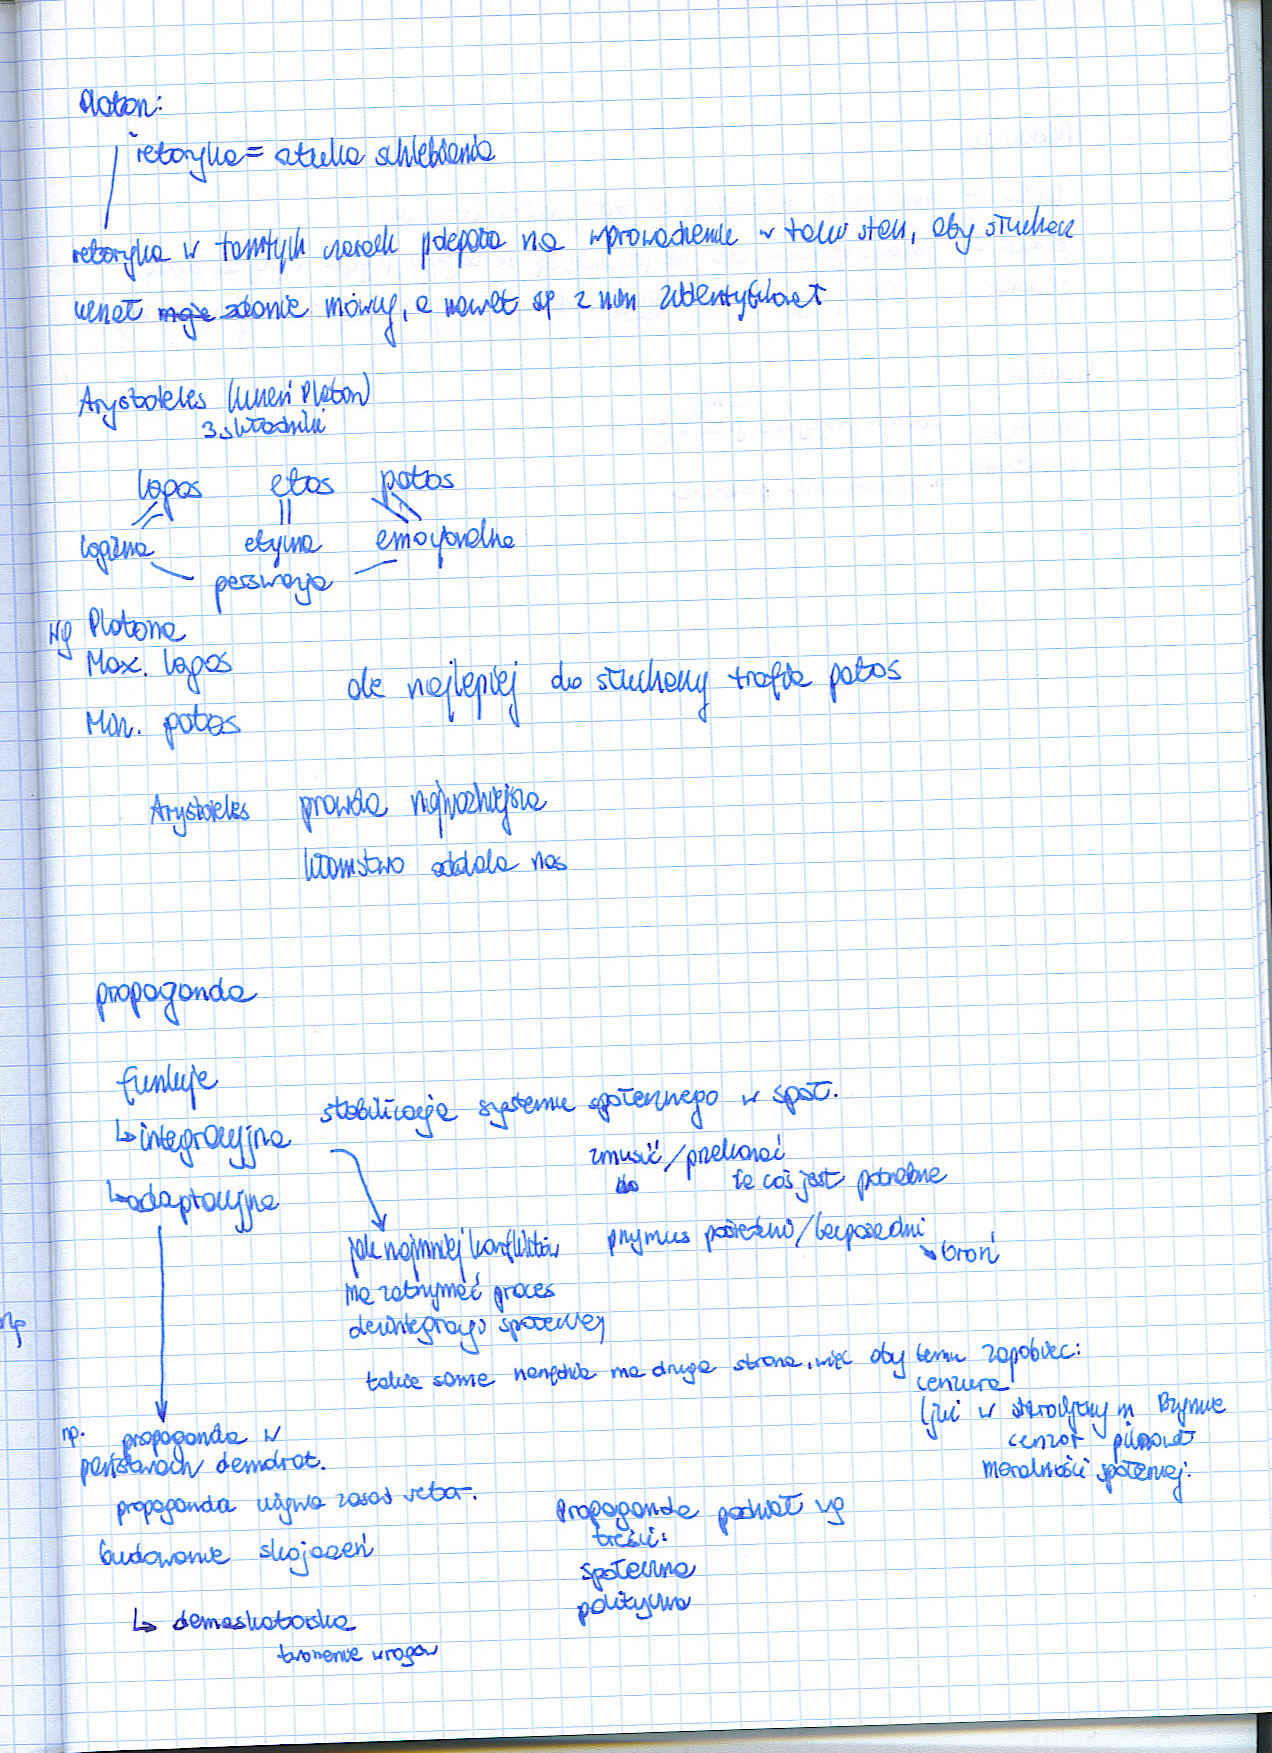 Platon:
retoryka = sztuka schlebiania
retoryka w tamtych czasach polegała na wprowadzenie w taki stan, aby słuchacz
uznał moje zdanie mówcy, a nawet się z nim zidentyfikował
Arystoteles (uczeń Platon)
3 składniki
logos etos patos
logiczna etyczna emocjonalna
perswazja
wg Platona
Max. logos
ale najlepiej do słuchaczy trafia patos
Min. patos
Arystoteles prawda najważniejsza
kłamstwo oddala nas
propaganda
funkcje
↳ integracyjna
stabilizacja systemu społecznego w społ.
zmusić / przekonać
do że coś jest potrzebne
↳ adaptacyjna
jak najmniej konfliktów
przymus pośredni / bezpośredni
↘ broń
ma zatrzymać proces
dezintegracji społecznej
np
takie same narzędzia ma druga strona, więc aby temu zapobiec:
cenzura
(już w starożytnym Rzymie
cenzor pilnował
moralności społecznej.
np. propaganda w
państwach demokrat.
propaganda używa zasad retor.
budowanie skojarzeń
Propaganda podział wg
treści:
społeczna
polityczna
↳ demaskatorska
tworzenie wrogów